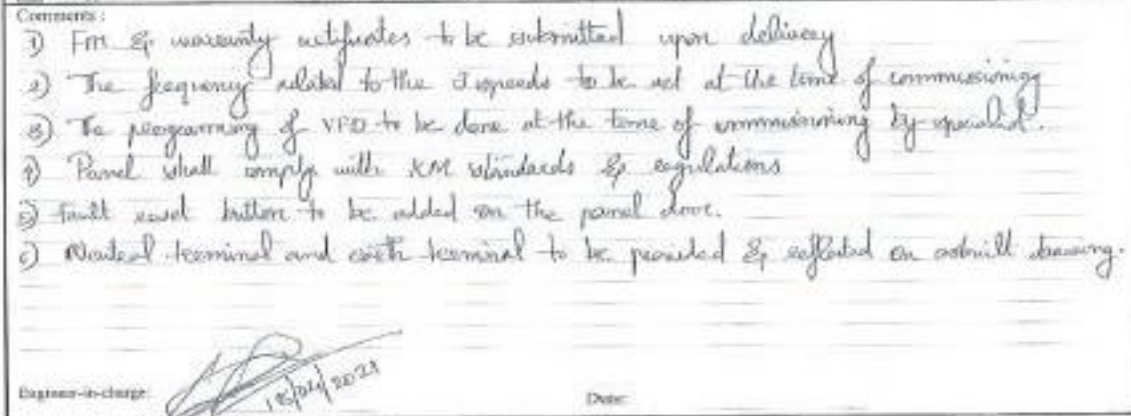 Comments :
1) FM & warranty certificates to be submitted upon delivery
2) The frequency related to the 3 speeds to be set at the time of commissioning
3) The programming of VFD to be done at the time of commissioning by specialist.
4) Panel shall comply with KM standards & regulations
5) Fault reset button to be added on the panel door.
6) Neutral terminal and earth terminal to be provided & reflected on asbuilt drawing.
Engineer-in-charge:
2021
Date: